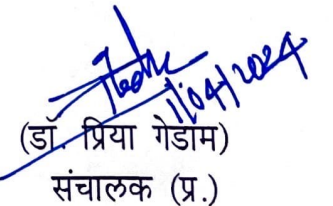 1/04/2024
(डॉ. प्रिया गेडाम)
संचालक (प्र.)